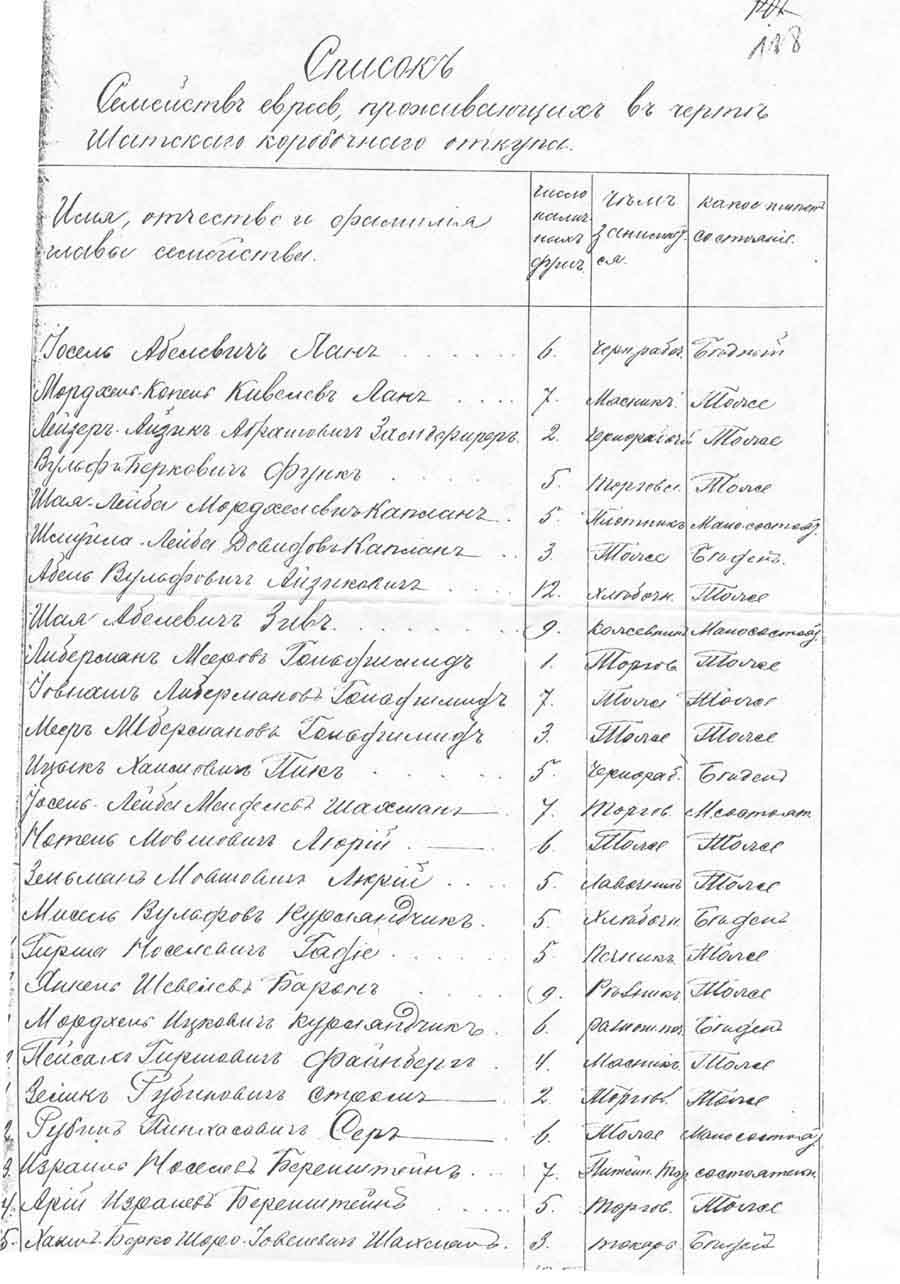 128
Списокъ
Семействъ евреевъ, проживающихъ въ чертѣ
Шатскаго коробочнаго откупа.
Имя, отчество и фамилія главы семейства. число наличныхъ душъ. чѣмъ занимается. какое имѣетъ состояніе.
Іосель Абелевичъ Ланъ 6. Чернорабоч. Бѣдный
Мордхель-Копель Кивелевъ Ланъ 7. Масникъ. Тоже
Лейзеръ-Айзикъ Абрамовичъ 2. Чернорабочій Тоже
Вульфъ Берковичъ Функъ 5. Торговл. Тоже
Шая-Лейба Мордхелевичъ Капланъ 5. Плотникъ Малосостоят.
Шмуйла-Лейба Довидовъ Капланъ 3. Тоже Бѣденъ.
Абель Вульфовичъ Айзиковичъ 12. Хлѣбочн. Тоже
Шая Абелевичъ Зивъ 9. кожевникъ Малосостоят.
Либерманъ Мееровъ Гольдшмидъ 1. Торгов. Тоже
Іовнашъ Либермановъ Гольдшмидъ 7. Тоже Тоже
Мееръ Либермановъ Гольдшмидъ 3. Тоже Тоже
Ицыкъ Хаимовичъ Пикъ 5. Чернораб. Бѣденъ
Іосель-Лейба Менделевъ Шахманъ 7. Торгов. М.состоят.
Нотель Мовшовичъ Люрій 6. Тоже Тоже
Зельманъ Мовшовичъ Люрій 5. Лавочникъ Тоже
Мисель Вульфовъ Курляндчикъ. 5. Хлѣбочн. Бѣденъ
Гирша Носелевичъ 5. Печникъ. Тоже
Янкель Шевелевъ Баронъ 9. Рѣзникъ. Тоже
Мордхель Ицковичъ Курляндчикъ. 6. Бѣденъ
Пейсахъ Гиршовичъ Файнбергъ 4. Масникъ. Тоже
Зеликъ Рубиновичъ 2. Торгов. Тоже
Рубинъ Пинхасовичъ Серъ 6. Тоже Малосостоят.
3. Израиль Носелевъ Беренштейнъ 7. Питейн. Тор. состоятельн.
4. Арій Израилевъ Беренштейнъ 5. Торгов. Тоже
5. Хаимъ-Берко Іовелевичъ Шахманъ. 3. токарь Бѣденъ